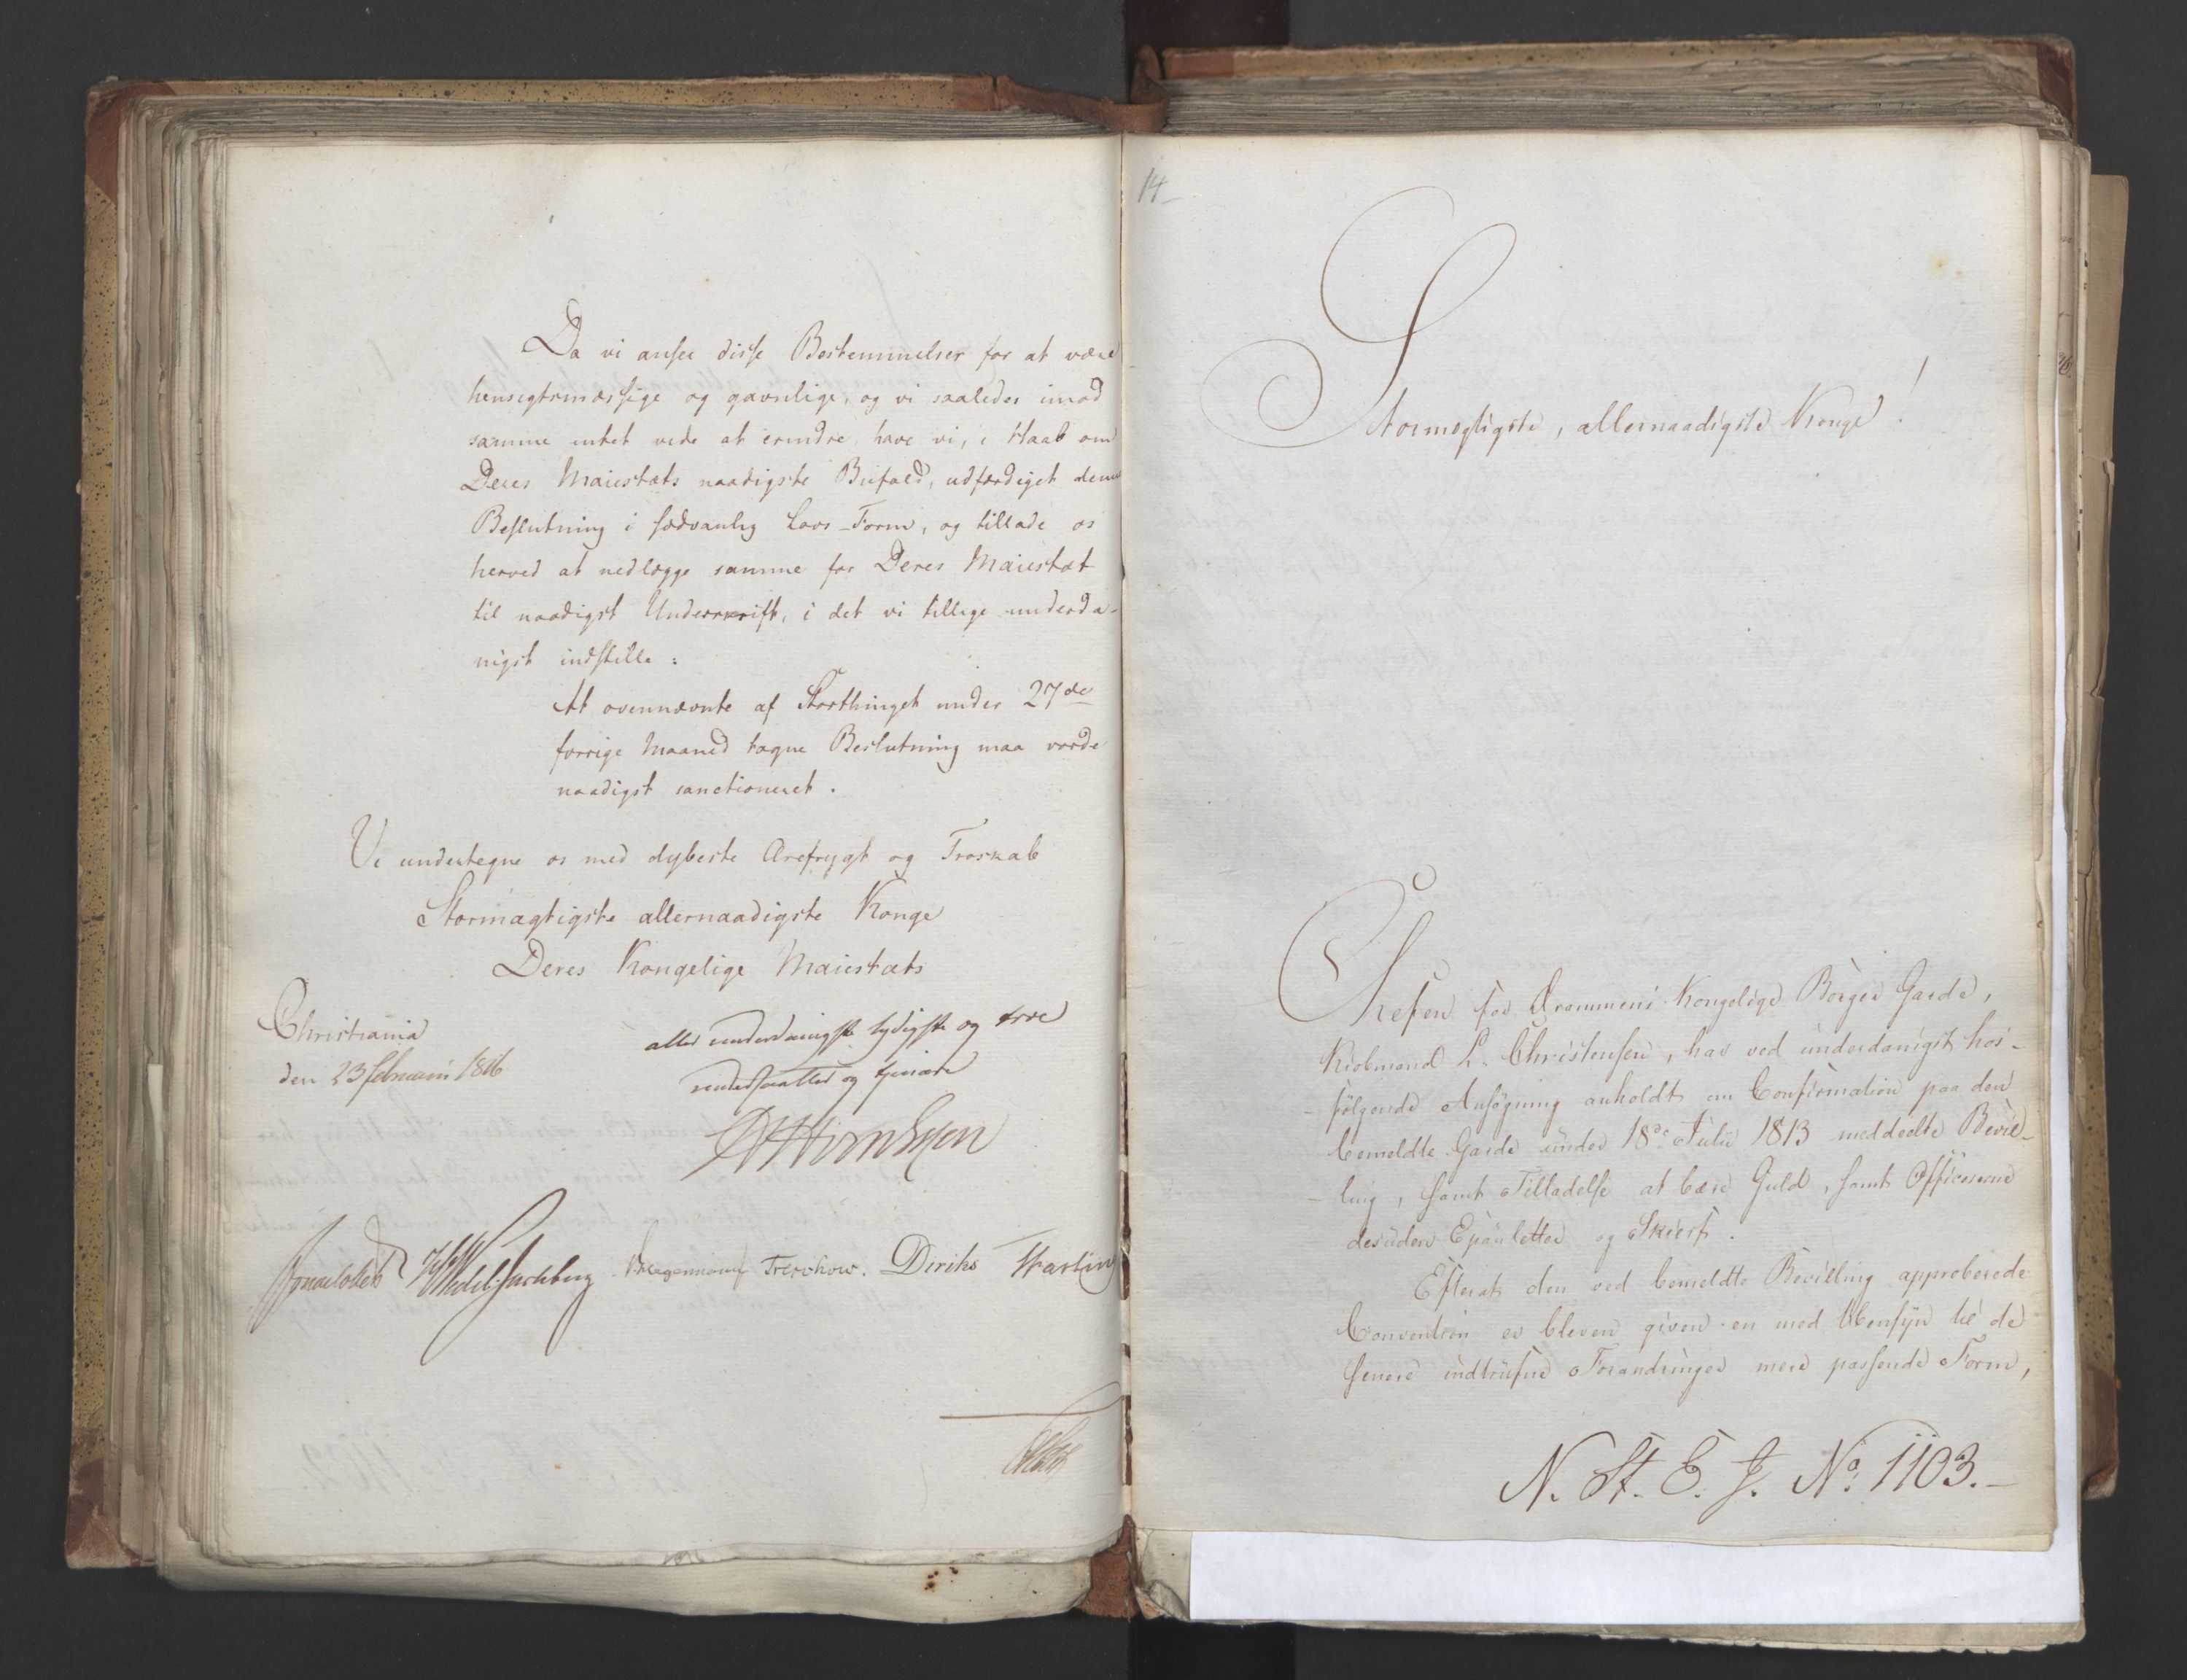 Da vi ansee disse Bestemmelser for at være
hensigtsmæssige og gavnlige, og vi saaledes imod
samme intet vide at erindre, have vi, i Haab om
Deres Maiestæts naadigste Biefald, udfærdiget denne
Beslutning i sædvanlig Lovs-Form, og tillade os
herved at nedlægge samme for Deres Maiestæt
til naadigst Underskrift, i det vi tillige underda-
nigst indstille:
At ovennævnte af Storthinget under 27de
forrige Maaned tagne Beslutning maa vorde
naadigst sanctioneret.
Vi undertegne os med dybeste Ærefrygt og Troskab
Stormægtigste allernaadigste Konge
Deres Kongelige Maiestæts
Christiania
den 23 februarii 1816
aller underdanigste lydigste og troe
undersaatter og tjenere
Sommerfeldt HWedel Jarlsberg Treschow. Diriks
14
Stormægtigste, allernaadigste Konge!
Chefen for Drammens Kongelige Borger Garde,
Kiøbmand L. Christensen, har ved underdanigst hos-
følgende Ansøgning anholdt om Confirmation paa den
bemeldte Garde under 18de Julii 1813 meddeelte Bevil-
ling, samt Tilladelse at bære Guld, samt Officererne
desuden Epauletter og Skierf.
Efterat den ved bemeldte Bevilling approberede
Convention er bleven given en med Hensyn til de
senere indtrufne Forandringer mere passende Form,
N. St. E. J. No. 1103.-